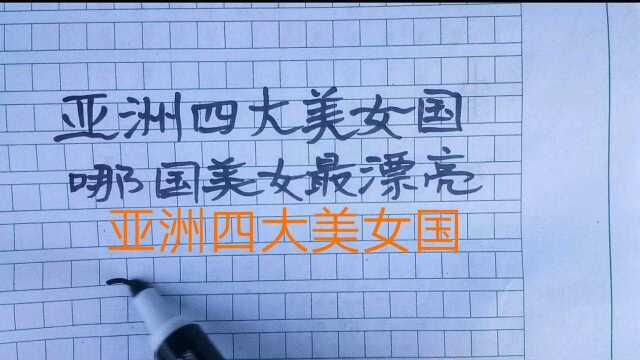 亚洲四大美女国
哪国美女最漂亮
亚洲四大美女国